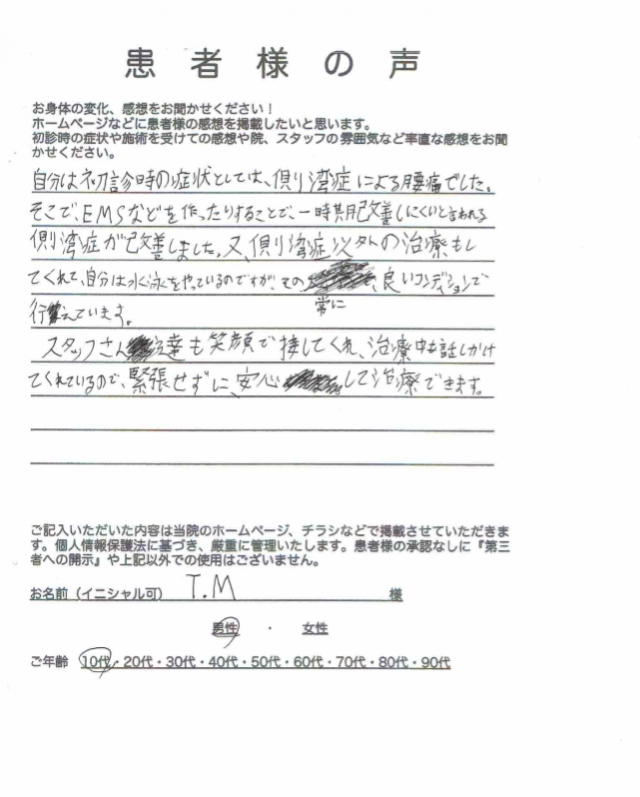 患者様の声
お身体の変化、感想をお聞かせください！
ホームページなどに患者様の感想を掲載したいと思います。
初診時の症状や施術を受けての感想や院、スタッフの雰囲気など率直な感想をお聞
かせください。
自分は初診時の症状としては、側湾症による腰痛でした。
そこで、EMSなどを作ったりすることで、一時期改善しにくいと言われる
側湾症が改善しました。又、側湾症以外の治療もし
てくれて、自分は水泳をやっているのですが、その、良いコンディションで
常に
行えています。
スタッフさん達も笑顔で接してくれ、治療中も話しかけ
てくれているので、緊張せずに、安心して治療できます。
ご記入いただいた内容は当院のホームページ、チラシなどで掲載させていただきま
す。個人情報保護法に基づき、厳重に管理いたします。患者様の承認なしに『第三
者への開示』や上記以外での使用はございません。
お名前（イニシャル可） T.M 様
男性 ・ 女性
ご年齢 10代・20代・30代・40代・50代・60代・70代・80代・90代